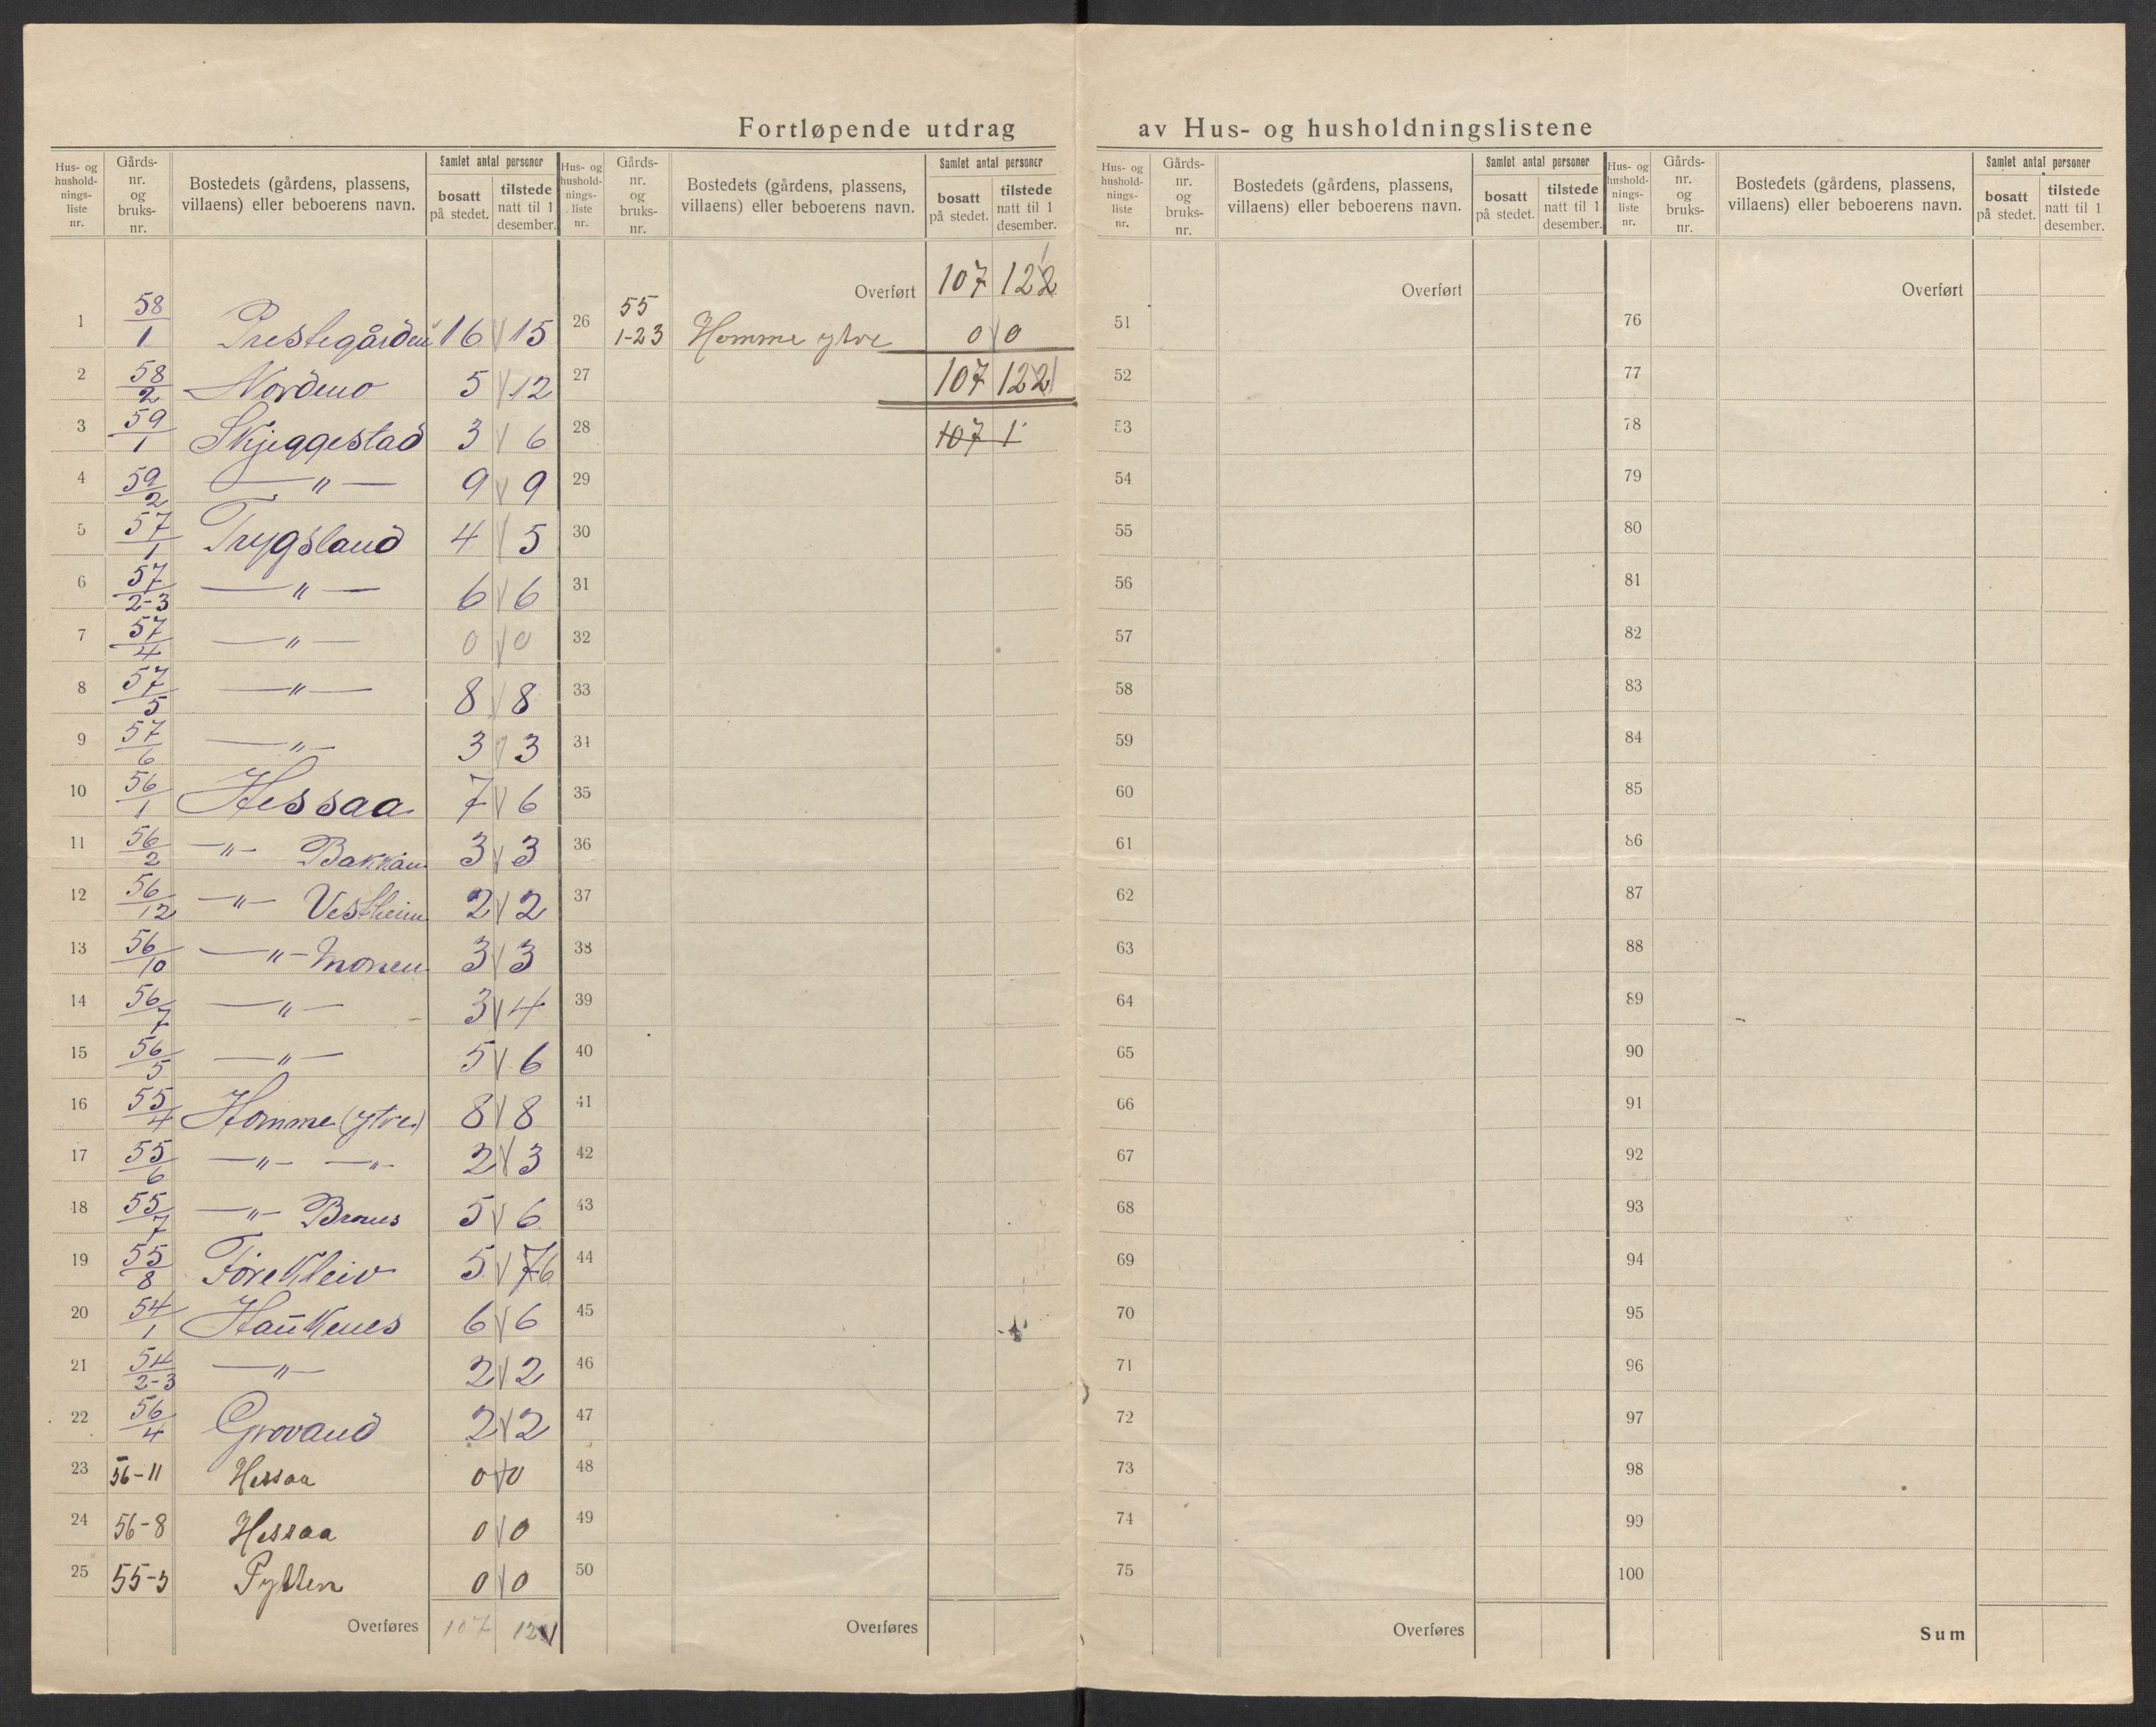 Fortløpende utdrag av Hus- og husholdningslistene
Hus- og hushold-nings-liste nr. | Gårds-nr. og bruks-nr. | Bostedets (gårdens, plassens, villaens) eller beboerens navn. | Samlet antal personer | bosatt på stedet. | tilstede natt til 1 desember.
1 58/1 Prestegården 16 15
2 58/2 Nordmo 5 12
3 59/1 Skjeggestad 3 6
4 59/2 — " — 9 9
5 57/1 Trygsland 4 5
6 57/2-3 — " — 6 6
7 57/4 — " — 0 0
8 57/5 — " — 8 8
9 57/6 — " — 3 3
10 56/1 Hessaa 7 6
11 56/2 — " — Bakkan 3 3
12 56/12 — " — Vestheim 2 2
13 56/10 — " — Monen 3 3
14 56/7 — " — 3 4
15 56/5 — " — 5 6
16 55/4 Homme (ytre) 8 8
17 55/6 — " — — " — 2 3
18 55/7 — " — Brones 5 6
19 55/8 Forekleiv 5 7 6
20 54/1 Haukenes 6 6
21 54/2-3 — " — 2 2
22 56/4 Grovand 2 2
23 56-11 Hessaa 0 0
24 56-8 Hessaa 0 0
25 55-3 Pytten 0 0
Overføres 107 121
Hus- og hushold-nings-liste nr. | Gårds-nr. og bruks-nr. | Bostedets (gårdens, plassens, villaens) eller beboerens navn. | Samlet antal personer | bosatt på stedet. | tilstede natt til 1 desember.
Overført 107 122
26 55 1-23 Homme ytre 0 0
27 107 122
28 107 1
29
30
31
32
33
34
35
36
37
38
39
40
41
42
43
44
45
46
47
48
49
50
Overføres
Hus- og hushold-nings-liste nr. | Gårds-nr. og bruks-nr. | Bostedets (gårdens, plassens, villaens) eller beboerens navn. | Samlet antal personer | bosatt på stedet. | tilstede natt til 1 desember.
Overført
51
52
53
54
55
56
57
58
59
60
61
62
63
64
65
66
67
68
69
70
71
72
73
74
75
Overføres
Hus- og hushold-nings-liste nr. | Gårds-nr. og bruks-nr. | Bostedets (gårdens, plassens, villaens) eller beboerens navn. | Samlet antal personer | bosatt på stedet. | tilstede natt til 1 desember.
Overført
76
77
78
79
80
81
82
83
84
85
86
87
88
89
90
91
92
93
94
95
96
97
98
99
100
Sum